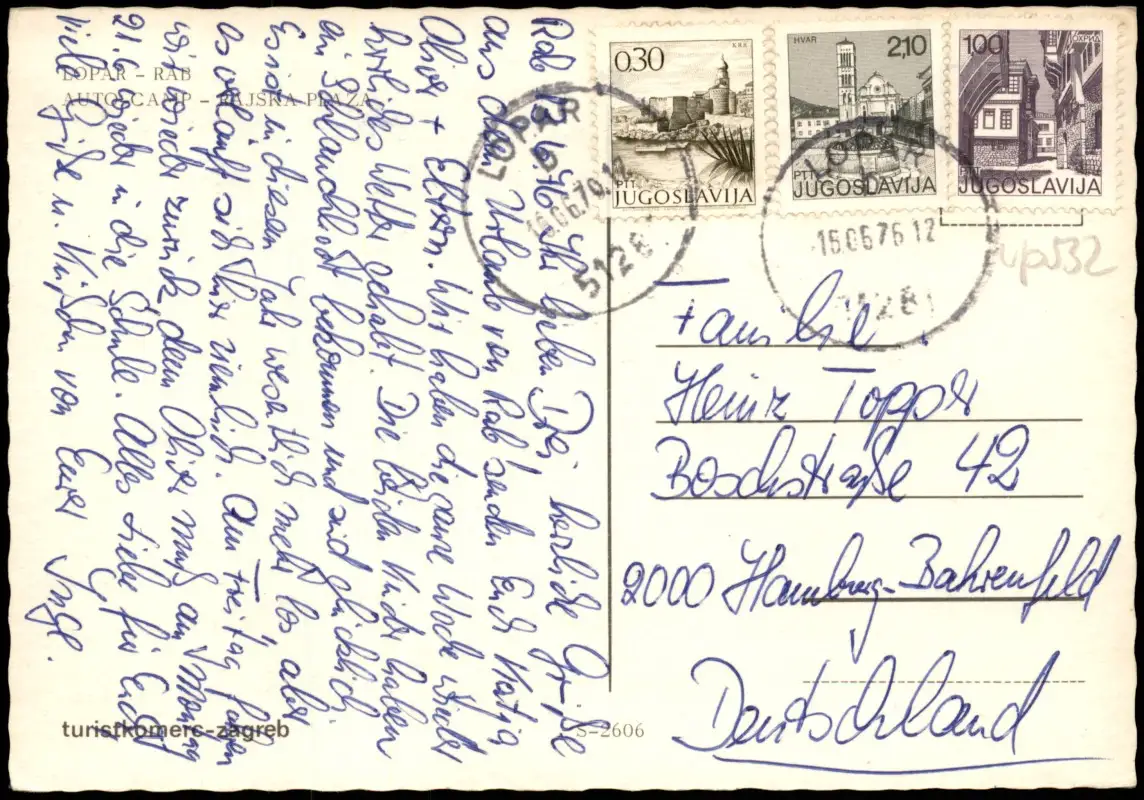 LOPAR – RAB
AUTO-CAMP – RAJSKA PLAŽA
Rab 13.6.76 Ihr lieben Drei, herzliche Grüße
aus dem Urlaub von Rab senden Euch Katja
Oliver + Eltern. Wir haben die ganze Woche wieder
herrliches Wetter gehabt. Die beiden Kinder haben
ein Schlauchboot bekommen und sind glücklich
Es ist in diesem Jahr wesentlich mehr los, aber
es verläuft sich hier ziemlich. Am Freitag fahren
wir wieder zurück, denn Oliver muß am Montag
21.6. wieder in die Schule. Alles Liebe für Euch
viele Grüße u. Küßchen von Eurer Inge.
turistkomerc-zagreb
S-2606
0.30
KRK
PTT
JUGOSLAVIJA
HVAR
2,10
PTT
JUGOSLAVIJA
1,00
OХРИД
JUGOSLAVIJA
LOPAR
16.06.76.12
5128
LOPAR
16.06.76 12
5128
Familie
Heinz Topper
Boschstraße 42
2000 Hamburg-Bahrenfeld
Deutschland